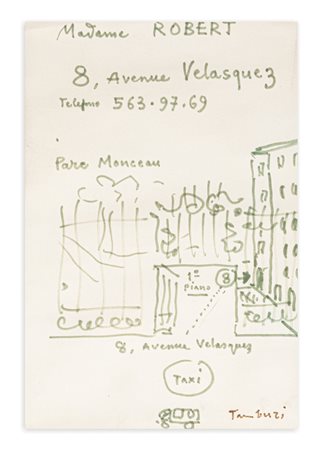 Madame ROBERT
8, Avenue Velasquez
Telefono 563.97.69
Parc Monceau
1º
piano
8
8, Avenue Velasquez
TAXI
Tamburi